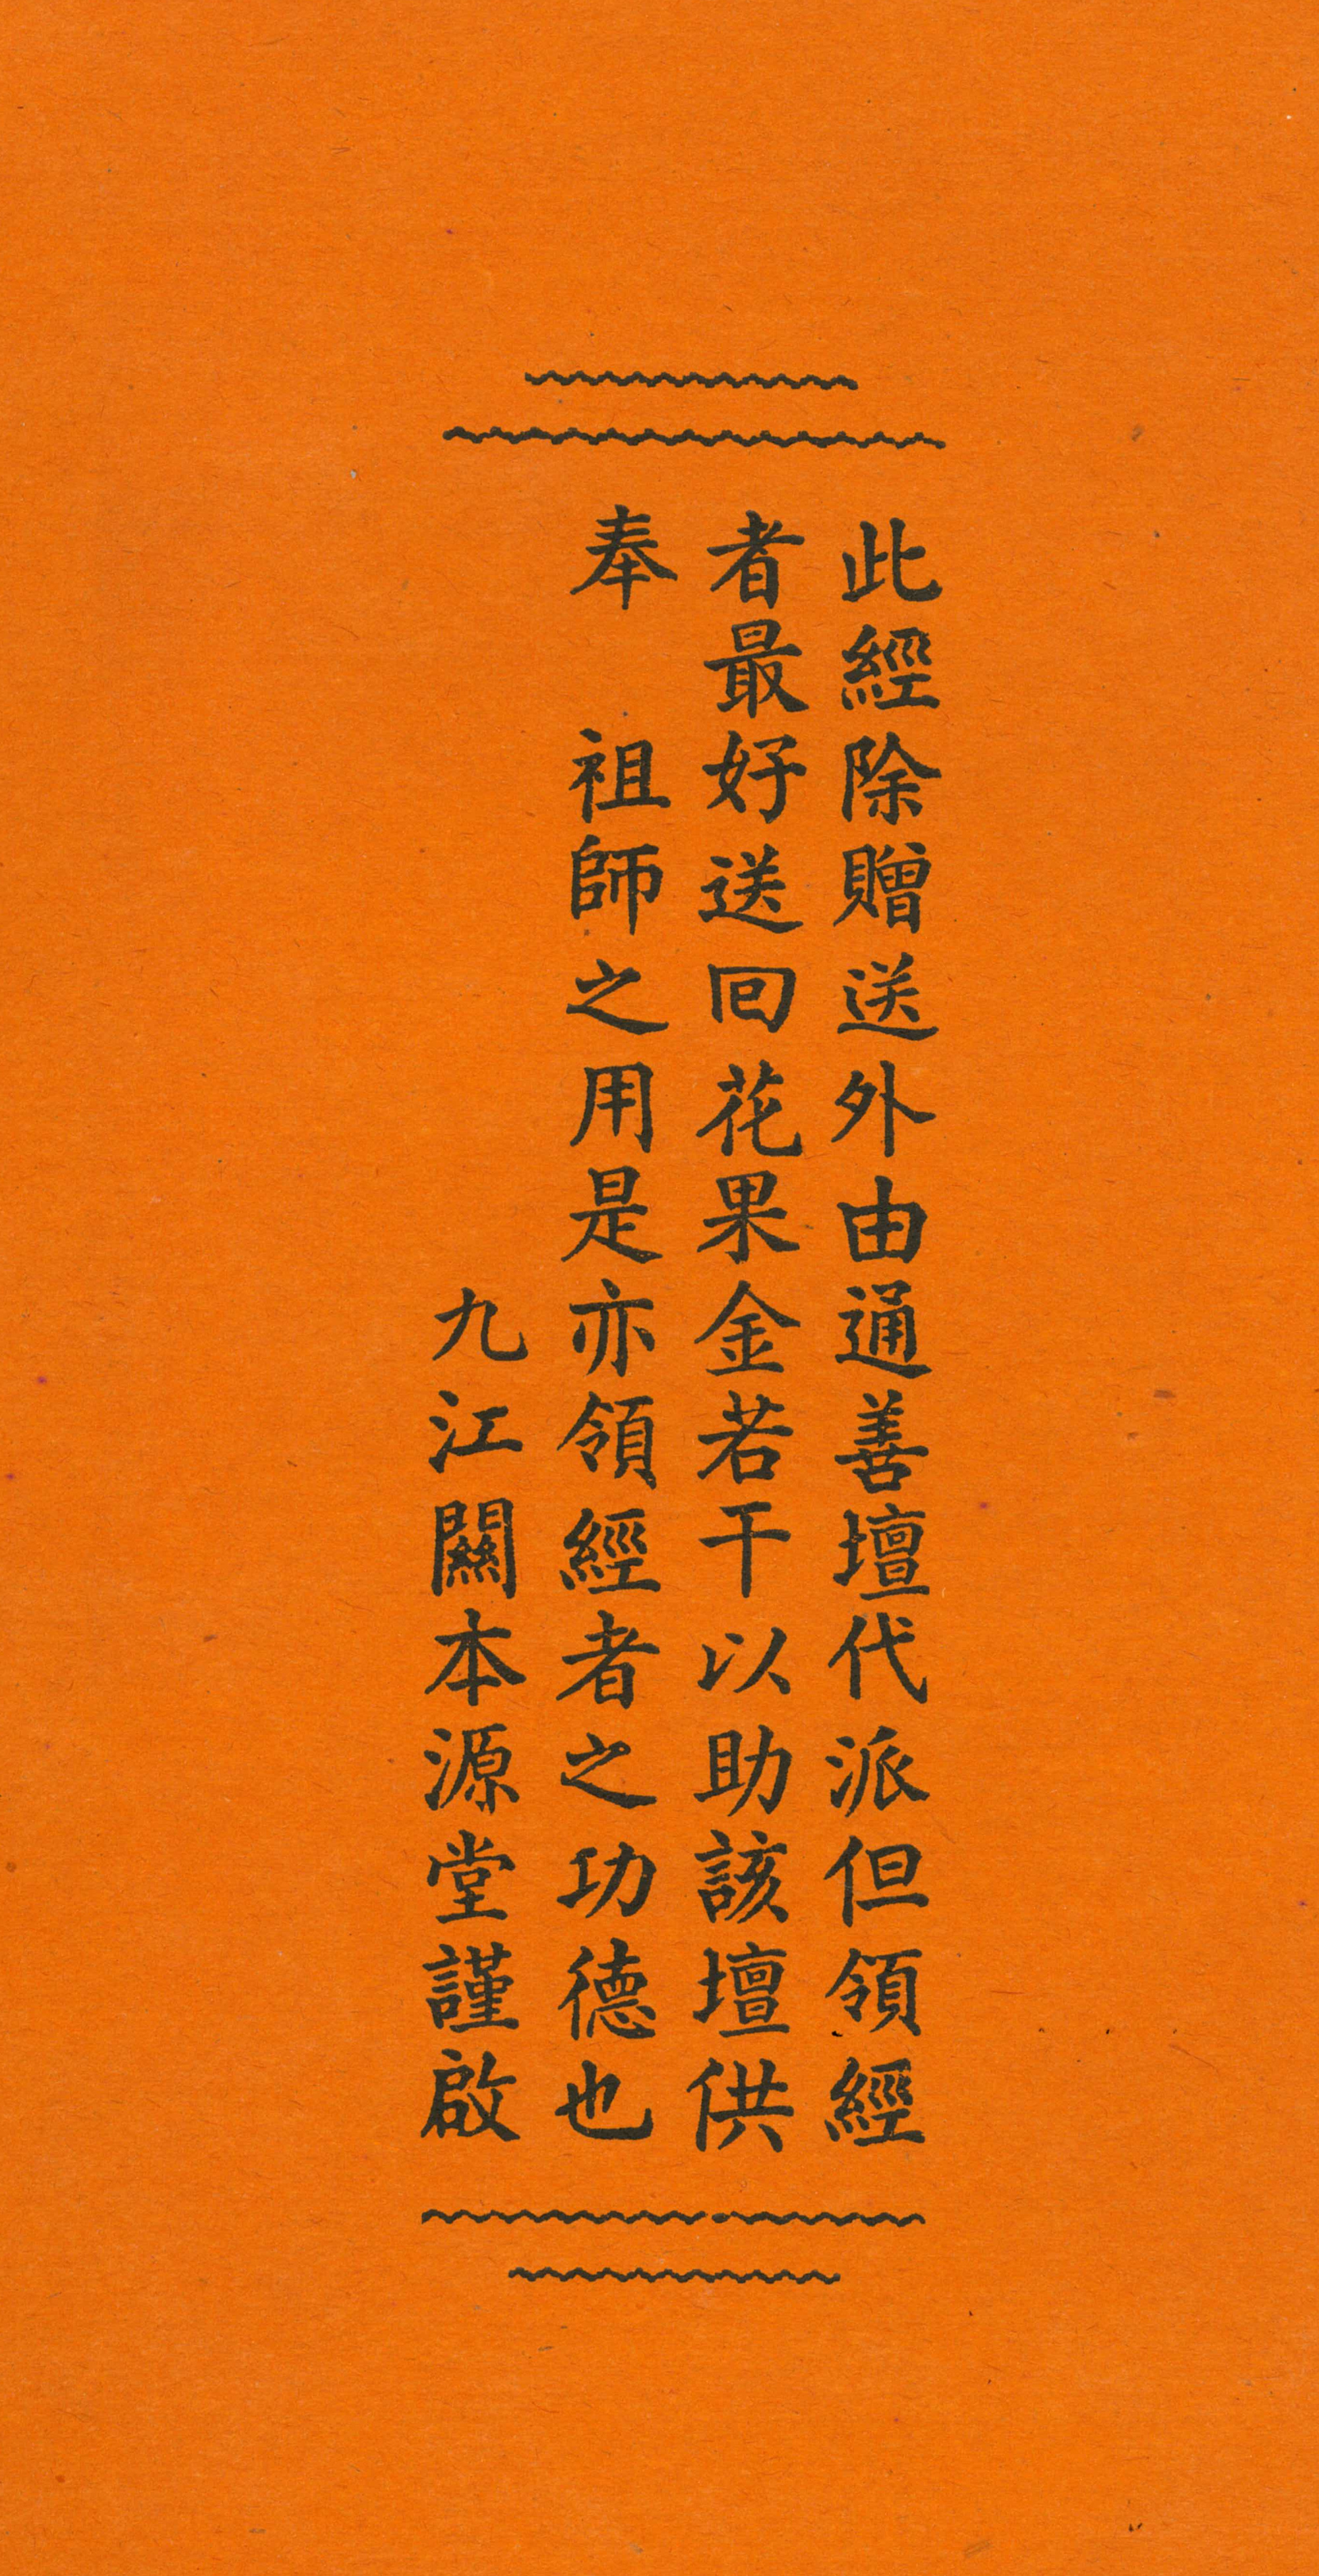 此經除贈送外由通善壇代派但領經
者最好送回花果金若干以助該壇供
奉　祖師之用是亦領經者之功德也
九江關本源堂謹啟